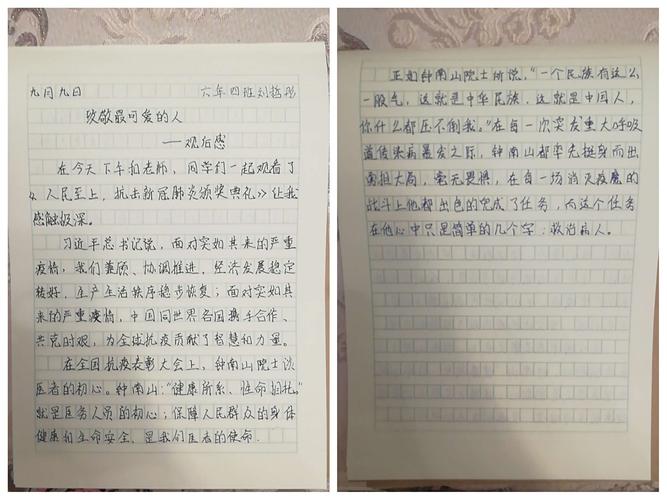 九月九日 六年四班刘哲彤
致敬最可爱的人
——观后感
在今天下午和老师,同学们一起观看了
《人民至上,抗击新冠肺炎颁奖典礼》让我
感触极深。
习近平总书记说,面对突如其来的严重
疫情,我们兼顾、协调推进,经济发展稳定
转好,生产生活秩序稳步恢复;面对突如其
来的严重疫情,中国同世界各国携手合作、
共克时艰,为全球抗疫贡献了智慧和力量。
在全国抗疫表彰大会上,钟南山院士谈
医者的初心。钟南山:“健康所系、性命相托。”
就是医务人员的初心;保障人民群众的身体
健康和生命安全,是我们医者的使命.
正如钟南山院士所说,“一个民族有这么
一股气,这就是中华民族,这就是中国人,
你什么都压不倒我。”在每一次突发重大呼吸
道传染病暴发之际,钟南山都率先挺身而出
勇担大局,毫无畏惧,在每一场消灭疫魔的
战斗上他都出色的完成了任务,而这个任务
在他心中只是简单的几个字:救治病人。